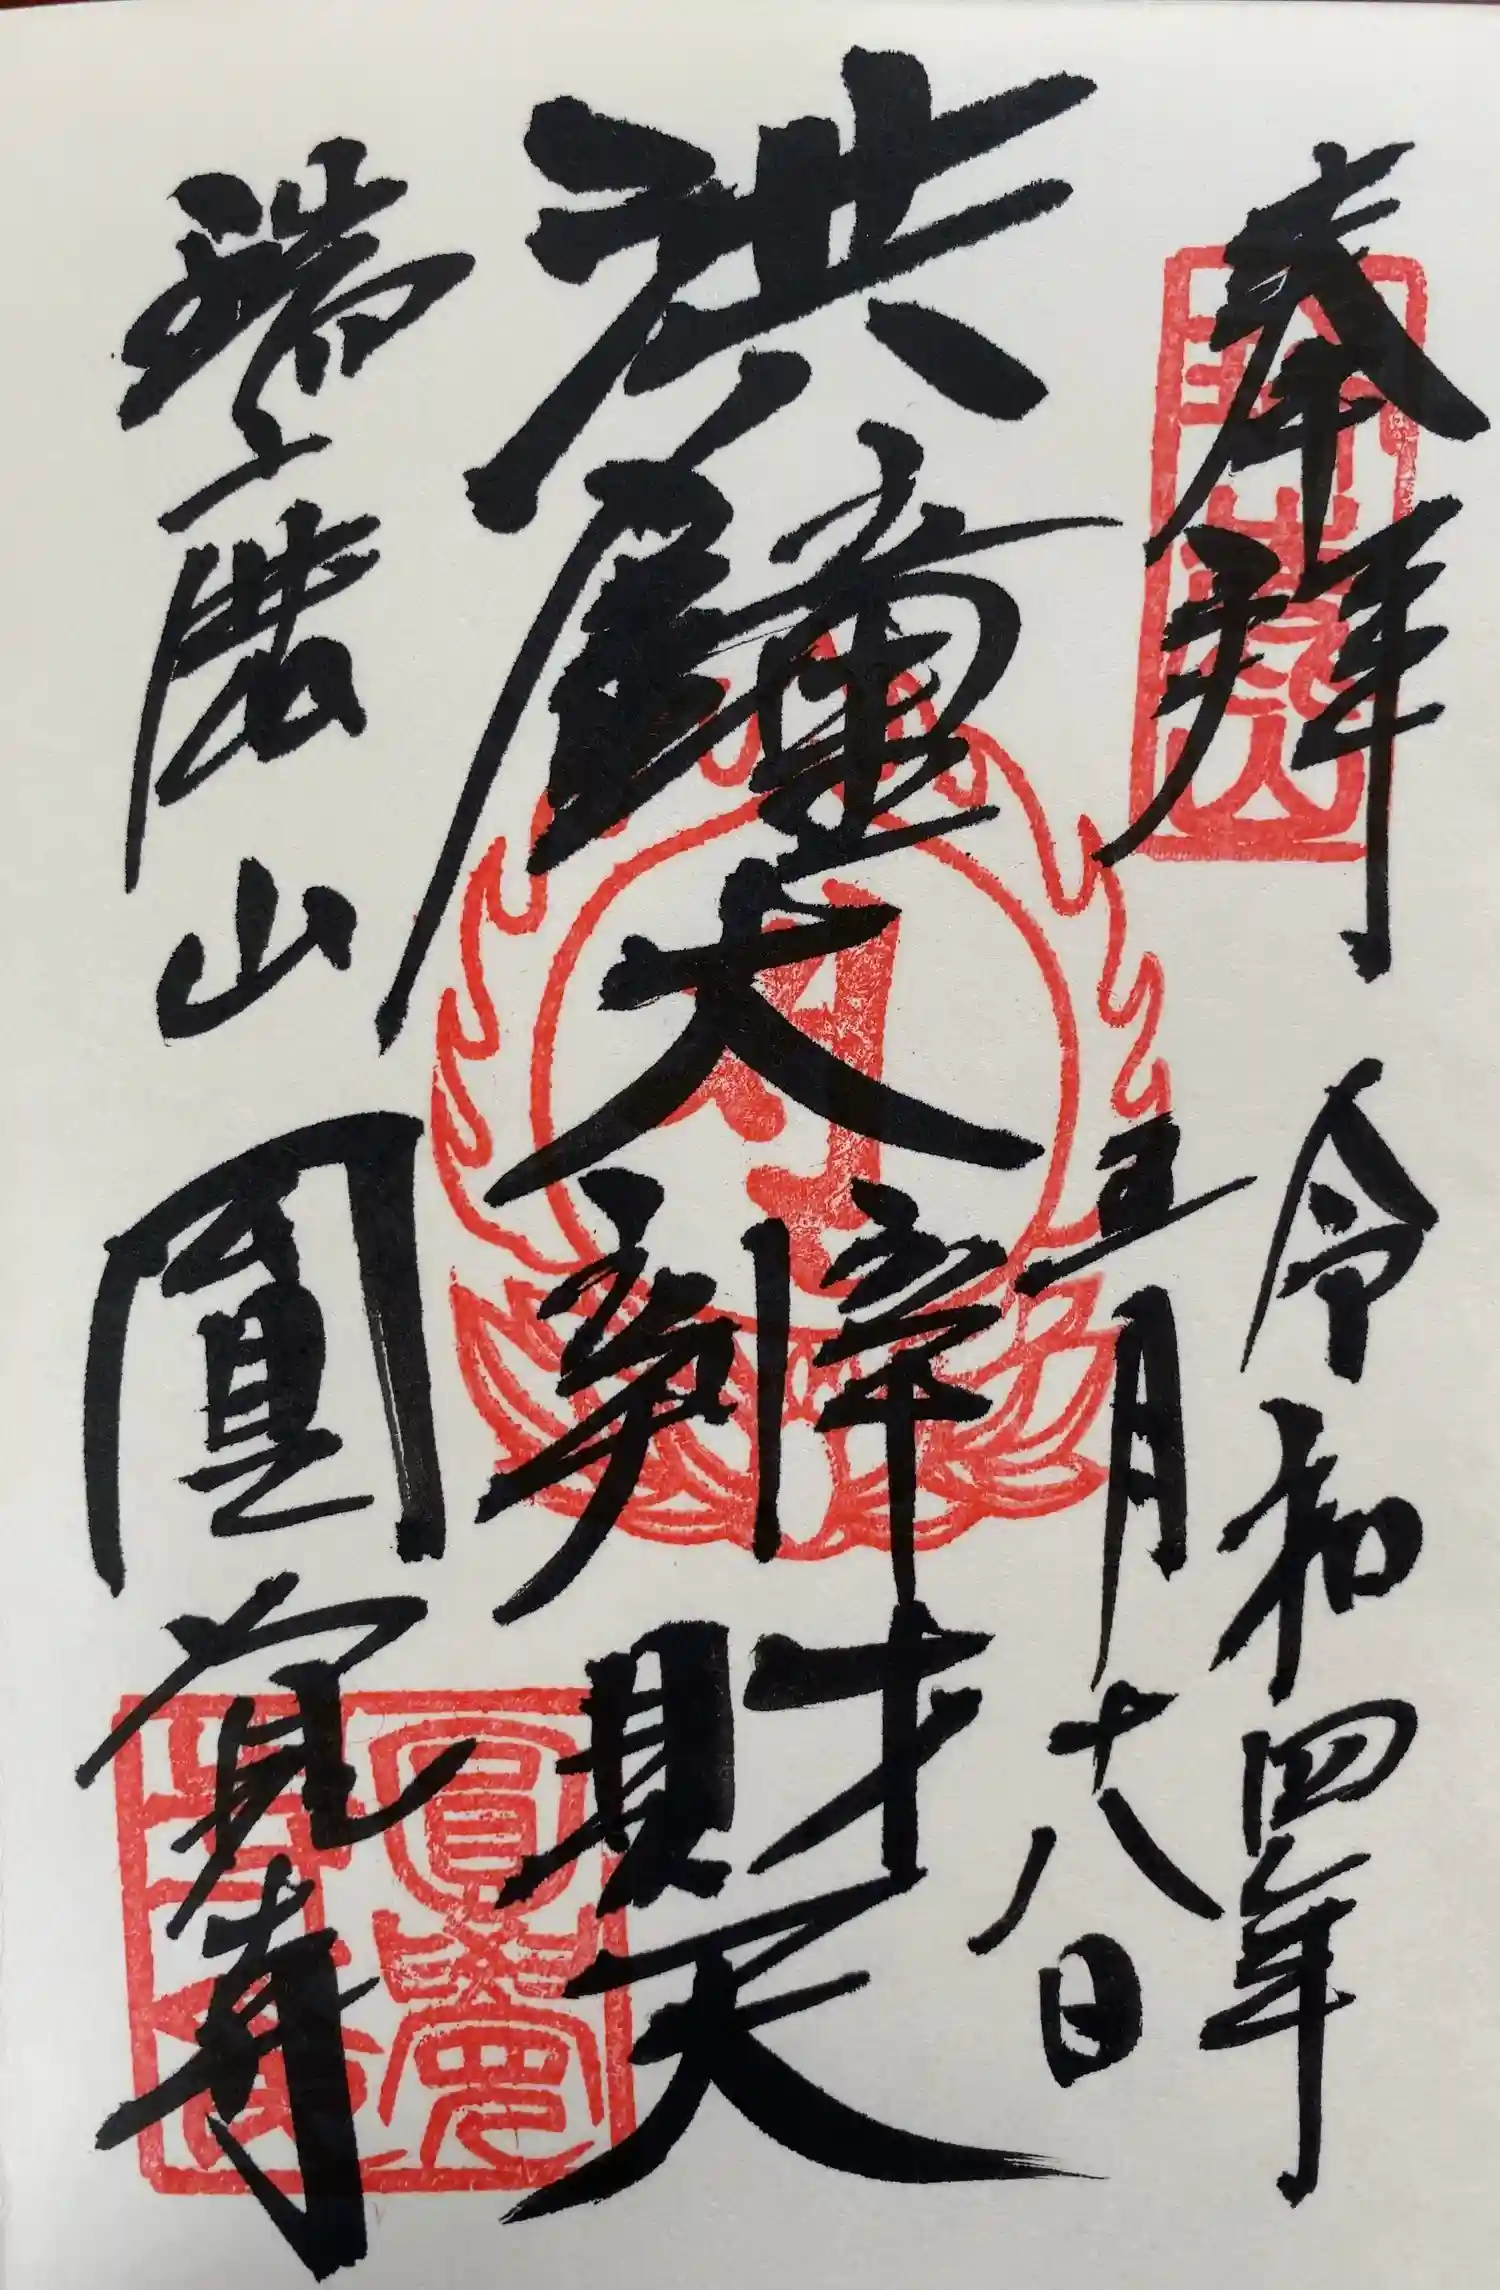 奉拝
令和四年
五月十八日
洪鐘大辨財天
瑞鹿山
圓覺寺